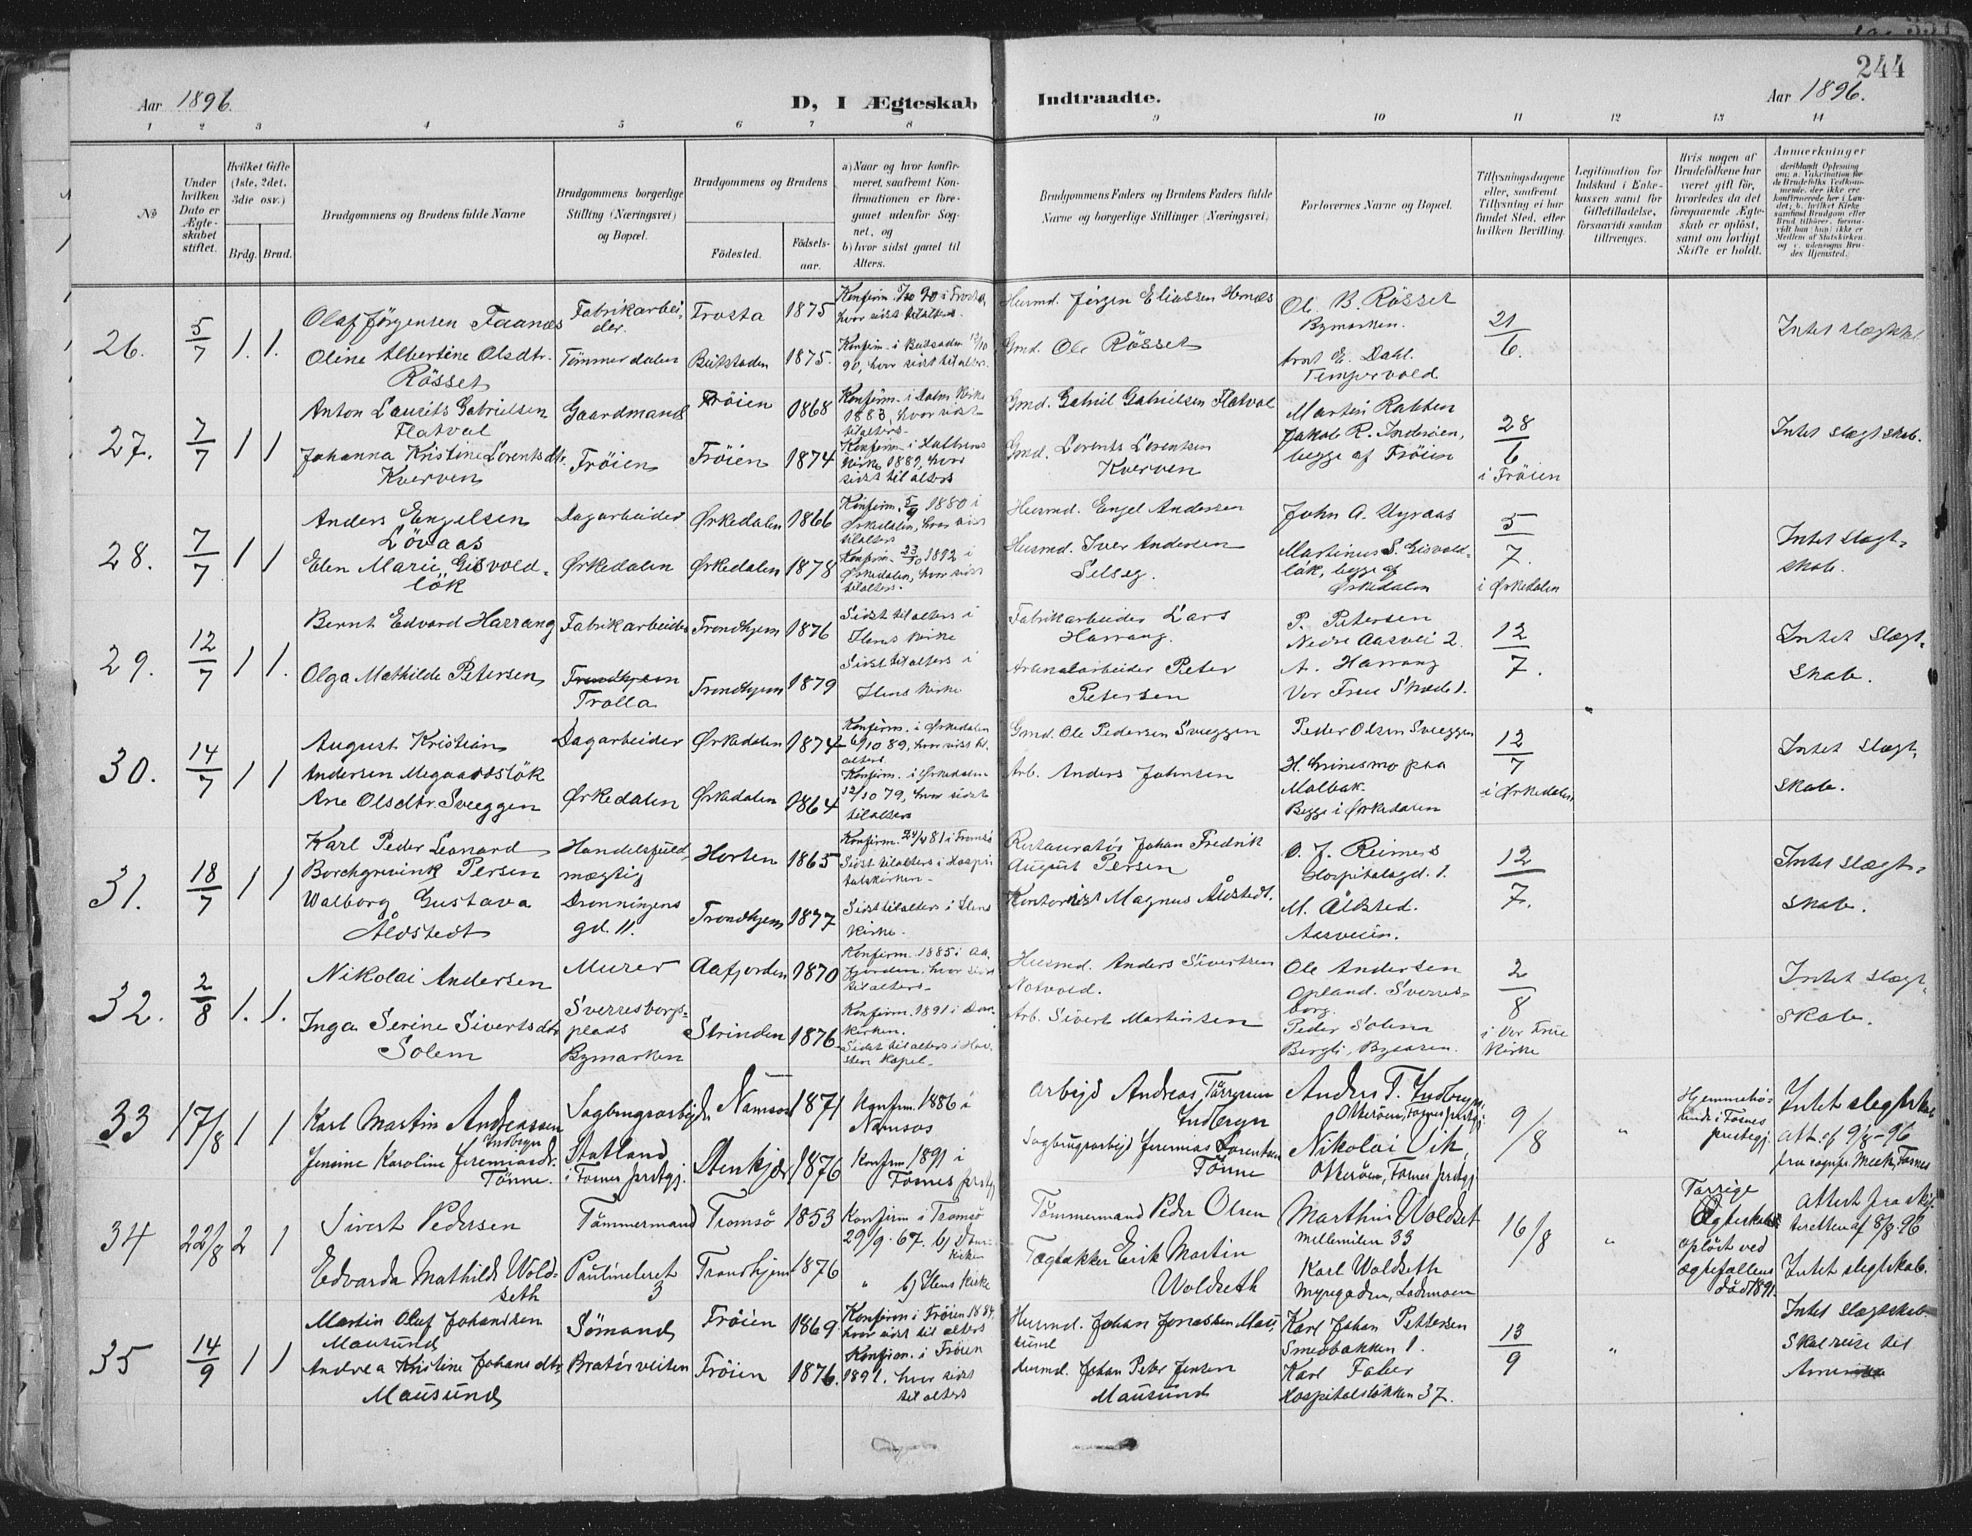 244
Aar 1896.
D, I Ægteskab Indtraadte.
Aar 1896.
1 2 3 4 5 6 7 8 9 10 11 12 13 14
No
Under hvilken Dato er Ægteskabet stiftet.
Hvilket Gifte (1ste, 2det, 3die osv.)
Brdg. Brud.
Brudgommens og Brudens fulde Navne
Brudgommens borgerlige Stilling (Næringsvei) og Bopæl.
Brudgommens og Brudens
Fødested.
Fødselsaar.
a) Naar og hvor konfirmeret, saafremt Konfirmationen er foregaaet udenfor Sognet, og
b) hvor sidst gaaet til Alters.
Brudgommens Faders og Brudens Faders fulde Navne og borgerlige Stillinger (Næringsvei)
Forlovernes Navne og Bopæl.
Tillysningsdagene eller, saafremt Tillysning ei har fundet Sted, efter hvilken Bevilling.
Legitimation for Indskud i Enkekassen samt for Giftetilladelse, forsaavidt saadan tiltrænges.
Hvis nogen af Brudefolkene har været gift før, hvorledes da det foregaaende Ægteskab er opløst, samt om lovligt Skifte er holdt.
Anmærkninger
26.
5/7
1. 1.
Olaf Jørgensen Faanes
Oline Albertine Olsdtr. Røsset
Fabrikarbeider.
Tømmerdalen
Frosta 1875
Butstaden 1875.
hvor sidst til alters.
90, hvor sidst til alters.
Husmd. Jørgen Eliassen Hernæs
Gmd. Ole Røsset
Ol. B. Røsset
Bymarken.
Arnt E. Dahl.
Tempervold
21/6.
27.
7/7
1 1
Anton Laurits Gabrielsen
Flatval
Johanna Kristine Lorentsdtr.
Kverven
Gaardmand
Frøien
Frøien 1868
Frøien 1874
1883, hvor sidst
til alters.
Kirke 1889, hvor
sidst til alters
Gmd. Gabriel Gabrielsen Flatval
Gmd. Lorents Lorentsen
Kverven
Martin Rabben
Jakob R. Inderøien,
begge af Frøien
28/6
i Frøien
Intet slægtskab.
28.
7/7
1 1
Anders Engelsen
Løvaas
Elen Marie Gisvoldløk
Dagarbeider
Ørkedalen
Ørkedalen 1866
Ørkedalen 1878
Konfirm. 5/9 1880 i
Ørkedalen, hvor sidst
til alters
Konfirm. 23/10 1892 i
Ørkedalen, hvor sidst
til alters.
Husmd. Engel Andersen
Husmd. Iver Andersen
Selseg.
John A. Uyraas
Martinus S. Gisvoldløk, begge af
Ørkedalen
5/7.
i Ørkedalen
Intet slægtskab.
29.
12/7
1 1.
Bernt Edvard Harrang
Olga Mathilde Petersen
Fabrikarbeider
Trondhjem
Trolla
Trondhjem 1876
Trondhjem 1879
Sidst til alters i
Ilens Kirke
Sidst til alters i
Ilens Kirke
Fabrikarbeider Lars
Harrang.
Peter
Petersen
P. Petersen
Nedre Aasvei 2.
A. Harrang
12/7.
Intet Slægtskab.
30.
14/7
1 1
August Kristian
Andersen Megaardsløk
Ane Olsdtr. Sveggen
Dagarbeider
Ørkedalen
Ørkedalen 1874
Ørkedalen 1864
Konfirm. i Ørkedalen
6/10 89, hvor sidst til
alters.
Konfirm. i Ørkedalen
12/10 79, hvor sidst
til alters
Gmd. Ole Pedersen Sveggen
Arb. Anders Johnsen
Peder Olsen Sveggen
H. Grinesmo paa
Malbak.
Begge i Ørkedalen
12/7
i Ørkedalen
Intet slægtskab.
31.
18/7
1 1
Karl Peder Leonard
Borchgrevink Persen
Walborg Gustava
Åldstedt
Handelsfuldmægtig
Dronningens
gd. 11.
Horten 1865
Trondhjem 1877
Konfirm. 24/4 81 i Tromsø
Sidst til alters i Hospitalskirken.
Sidst til alters i Ilens
Kirke.
Restauratør Johan Fredrik
August Persen
Kontorist Magnus Åldstedt.
O. J. Reimers
Hospitalsgd. 1.
M. Åldsted.
Aasveien.
12/7.
Intet slægtskab.
32.
2/8
1. 1.
Nikolai Andersen
Inga Serine Sivertsdtr
Solem
Murer
Sverresborgsplads
Bymarken
Aafjorden 1870
Strinden 1876
Konfirm. 1885 i Aafjorden, hvor sidst
til alters.
Konfirm. 1891 i Domkirken.
Sidst til alters i Havsten Kapel.
Husmd. Anders Sivertsen
Notvold.
Arb. Sivert Martinsen
Ole Andersen
Opland. Sverresborg.
Peder Solem
Bergli, Byaasen.
2/8
i Vor Frue
Kirke
Intet slægtskab.
33
17/8
1 1
Karl Martin Andreassen
Indbryn
Jensine Karoline Jeremiasdtr.
Tønne.
Sagbrugsarbejdr
Statland
i Fosnes prstgj.
Namsos 1871
Stenkjær 1876
Konfirm. 1886 i
Namsos
Konfirm. 1891 i
Fosnes prstgj
Arbejd Andreas
Indbryn
Sagbrugsarbejd Jeremias Lorentsen
Tønne
Anders T. Indbryn
Otterøen, Fosnes prstgj.
Nikolai Vik,
Otterøen, Fosnes prstgj
9/8
"
Intet slegtskab
att. af 9/8-96
34
22/8
2 1
Sivert Pedersen
Edvarda Mathilde Woldseth
Tømmermand
Paulineleret
3
Tromsø 1853
Trondhjem 1876
Konfirm i Tromsø
29/9 67. b) Domkirken
" b) Ilens Kirke
Tømmermand Peder Olsen
Tægtækker Erik Martin
Woldseth
Marthin Woldset
Mellemilen 33
Karl Woldseth
Myrgaden, Lademoen
16/8
"
opløst ved
ægtefællens
død 1891.
Attest fra skifteretten af 8/8 96
Intet slegtskab.
35
14/9
1 1
Martin Oluf Johansen
Mausund
Andrea Kristine Johansdtr
Mausund
Sømand
Bratørveiten
Frøien 1869
Frøien 1876.
Konfirm i Frøien 1884,
hvor sidst til alters
Konfirm. i Frøien
1891, hvor sidst
til alters
Husmd. Johan Jonassen Mausund
Husmd. Johan Peter Jensen
Mausund
Karl Johan Pettersen
Smedbakken 1.
Karl Faber
Hospitalsløkken 37.
13/9
"
Intet slægtskab.
Skal reise til
Amerika